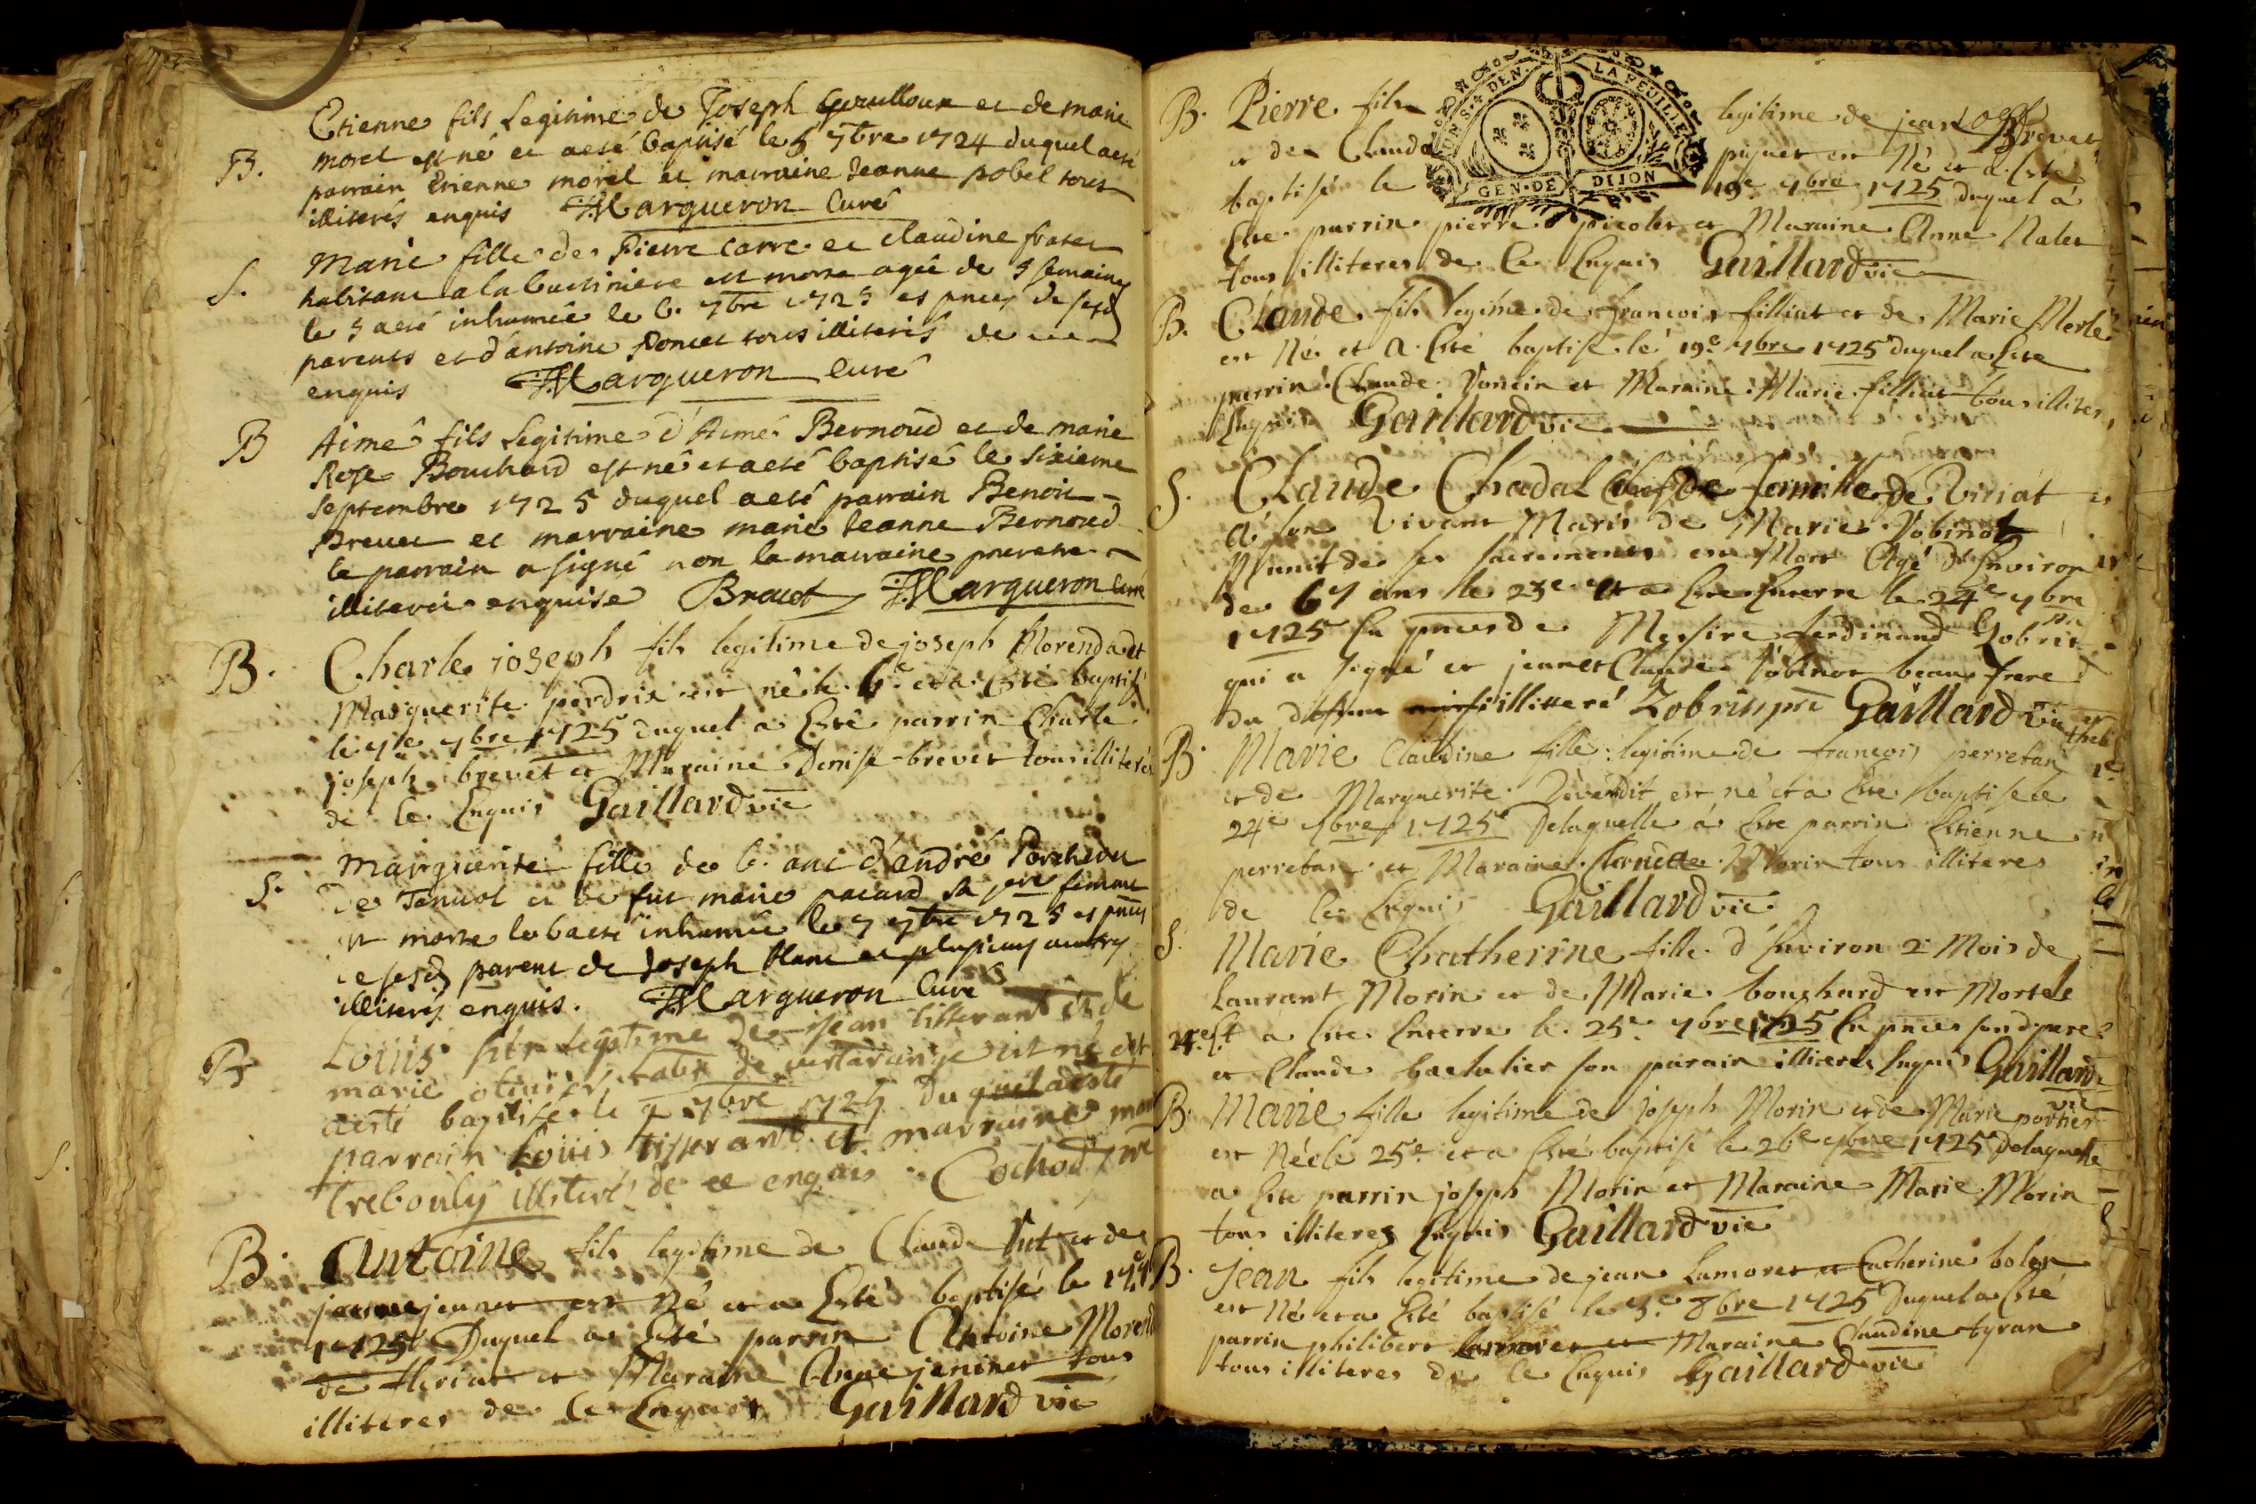 Etienne fils Legitime de Joseph et de marie
B. morel est né et aeté baptisé le 5 7bre 1724 duquel aeté
parrain Etienne morel et marraine Jeanne pobel tous
illiterés enquis Margueron Curé
Marie fille de Pierre Carre et Claudine frater
S. habitant a la est morte agée de 5 semaines
le 5 aeté inhumée le 6. 7bre 1725 es pnces de sesd
parents et d'antoine Poncet tous illiterés de ce
enquis Margueron Curé
B Aimé fils Legitime d'Aimé Bernoud et de marie
Rose Bouchard est né et aeté baptisé le sixieme
septembre 1725 duquel aeté parrain Benoit
Brevet et marraine marie Jeanne Bernoud
le parrain a signé non la marraine pour etre
illiterée enquise Brevet Margueron Curé
B. Charle joseph fils legitime de joseph Morend et
Marguerite perdrix est né le 6e et a Esté baptisé
le 7e 7bre 1725 duquel a Esté parrin Charle
joseph brevet et Maraine Denise brevet tous illiterés
de Ce Enquis Gaillard vic
Marguerite fille de 6. ans d'andré
S. de et de fut marie pacard sa femme
est morte le 6 aeté inhumée le 7 7bre 1725 es pnces
de sesd parent de Joseph blanc et plusieurs autres
illiterés enquis. Margueron Curé
Louis fils Legitime de jean tisserant et de
B marie est né et
aesté baptisé le 9 7bre 1725 duquel a esté
parrain Louis tisserant et marraine
trebouly illiteré de ce enquis Cochod
B. Antoine fils legitime de Claude et de
jeanne jeunet est Né et a Esté baptisé le
1725 Duquel a Esté parrin Antoine
de et Maraine Anne jeninet tous
illiteres de Ce Enquis Gaillard vic
GEN·DE DIJON
LA FEUILLE
B. Pierre fils legitime de jean Brevet
et de Claud piquet est Né et a Esté
baptisé le 19e 7bre 1725 duquel à
Este parrin pierre picolet et Maraine Anne Nalet
tous illiteres de Ce Enquis Gaillard vic
B. Claude fils legitime de francois filliat et de Marie Merle
est Né et a Esté baptise le 19e 7bre 1725 duquel a Este
parrin Claude et Maraine Marie filliat tous illiter
Enquis Gaillard vic
S. Claude Chadal Chef de famille de Viriat
a son Vivant Maris de Marie Vobinot
Munit de ses sacrements est Mort Agé d'Environ
de 67 ans le 23e et a Este Enterre le 24e 7bre
1725 En pnces de Messire ferdinand Lobrit
qui a signé et jean et Claude Vobinot beau frere
du defunt illitteré Gaillard vic
B. Marie Claudine fille legitime de francois perretan
et de Marguerite Devendit est né et a Esté baptise le
24e 7bre 1725 Delaquelle à Este parrin Etienne
perretan et Maraine Morin tous illiteres
de Ce Enquis Gaillard vic
S. Marie Chatherine fille d'Environ 2 Mois de
Laurant Morin et de Marie bouchard est Morte le
24e et a Este Enterre le 25e 7bre 1725 En pnces sond pere
et Claude son parain illiteres Enquis Gaillard
vic
B. Marie fille legitime de joseph Morin et de Marie portier
est Née le 25e et a Esté baptise le 26e 7bre 1725 Delaquelle
a Este parrin joseph Morin et Maraine Marie Morin
tous illiteres Enquis Gaillard vic
B. jean fils legitime de jean Lamoret et Catherine bolon
est Né et a Esté baptisé le 3e 8bre 1725 Duquel a Esté
parrin philibert Lamoret et Maraine Claudine tyran
tous illiteres de Ce Enquis Gaillard vic